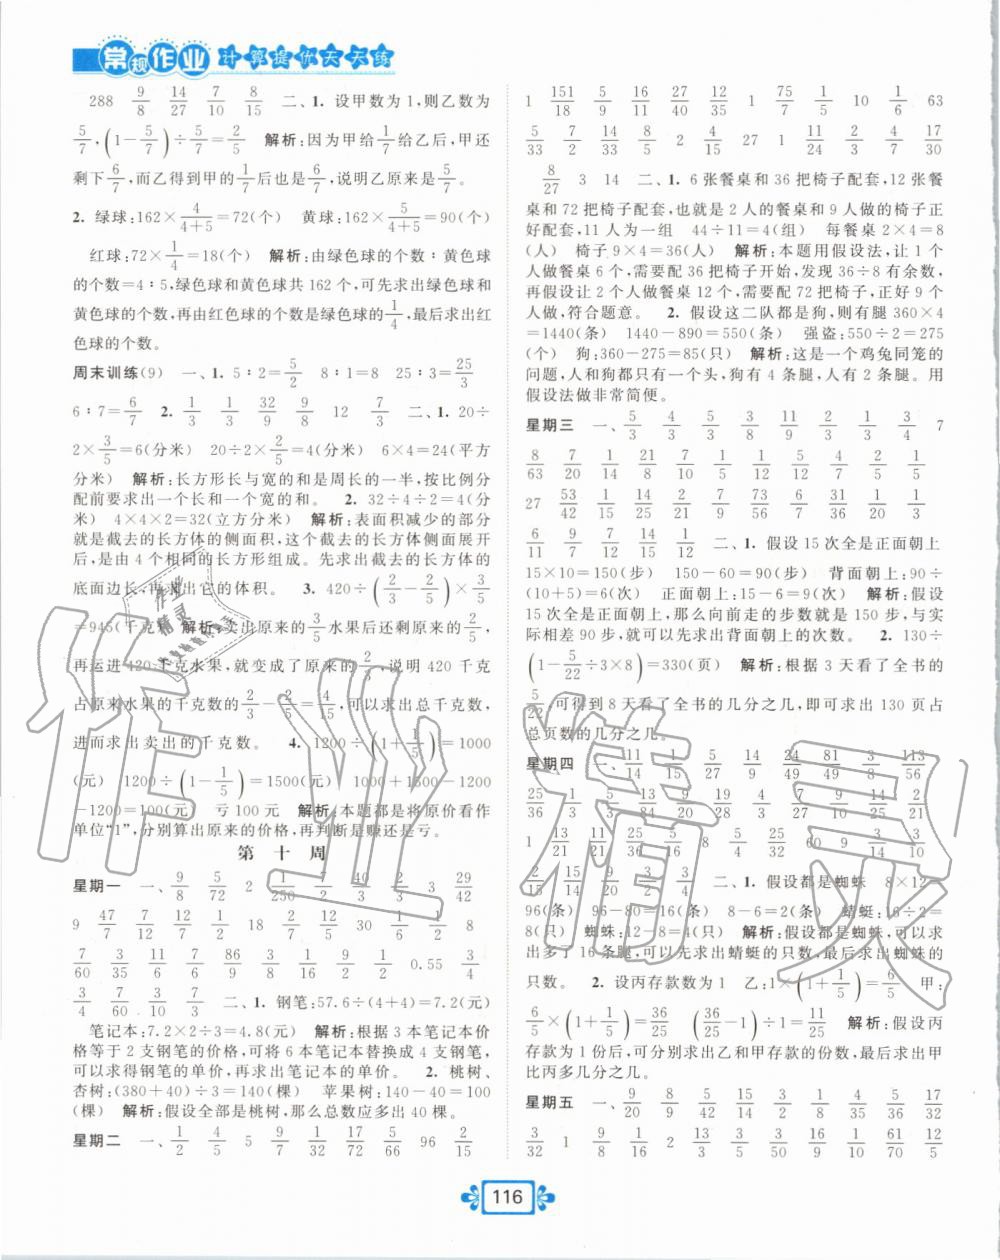 常规作业 计算提优天天练
288 9/8 14/27 7/10 8/15 二、1. 设甲数为1,则乙数为
5/7,(1-5/7)÷5/7=2/5 解析:因为甲给1/7给乙后,甲还
剩下6/7,而乙得到甲的1/7后也是6/7,说明乙原来是5/7。
2. 绿球:162×4/(4+5)=72(个) 黄球:162×5/(4+5)=90(个)
红球:72×1/4=18(个) 解析:由绿色球的个数∶黄色球
的个数=4∶5,绿色球和黄色球共162个,可先求出绿色球和
黄色球的个数,再由红色球的个数是绿色球的1/4,最后求出红
色球的个数。
周末训练(9) 一、1. 5∶2=5/2 8∶1=8 25∶3=25/3
6∶7=6/7 2. 1/3 1/3 32/9 9/8 12 7/3 二、1. 20÷
2×3/5=6(分米) 20÷2×2/5=4(分米) 6×4=24(平方
分米) 解析:长方形长与宽的和是周长的一半,按比例分
配前要求出一个长和一个宽的和。 2. 32÷4÷2=4(分
米) 4×4×2=32(立方分米) 解析:表面积减少的部分
就是截去的长方体的侧面积,这个截去的长方体侧面展开
后,是由4个相同的长方形组成。先求出截去的长方体的
底面边长,再求出它的体积。 3. 420÷(2/3-2/5)×3/5
=945(千克) 解析:卖出原来的3/5水果后还剩原来的2/5,
再运进420千克水果,就变成了原来的2/3,说明420千克
占原来水果的千克数的2/3-2/5=4/15,可以求出总千克数,
进而求出卖出的千克数。 4. 1200÷(1+1/5)=1000
(元) 1200÷(1-1/5)=1500(元) 1000+1500-1200
-1200=100(元) 亏100元 解析:本题都是将原价看作
单位“1”,分别算出原来的价格,再判断是赚还是亏。
第十周
星期一 一、9/8 5/72 2 1/250 7/2 40/3 2/3 3 29/42
9 47/7 7/12 12/7 1/2 18 2/7 12/5 30 1/6 1/2 8
7/60 3/35 11/6 7/11 86/9 3/8 1/16 9/2 1/2 0.55 3/4
3/4 7/60 3/10 7/3 二、1. 钢笔:57.6÷(4+4)=7.2(元)
笔记本:7.2×2÷3=4.8(元) 解析:根据3本笔记本价
格等于2支钢笔的价格,可将6本笔记本替换成4支钢笔,
可以求得钢笔的单价,再求出笔记本的单价。 2. 桃树、
杏树:(380+40)÷3=140(棵) 苹果树:140-40=100
(棵) 解析:假设全部是桃树,那么总数应多出40棵。
星期二 一、1/2 4/5 5 9/7 1/32 17/72 5/66 96 2/15
1 151/18 5/9 16/11 27/40 12/35 1 75/7 1/5 10 1/6 63
5/33 7/2 14/33 8/5 2 4/15 27 1 11/24 2/3 4/7 17/30
8/27 3 14 二、1. 6张餐桌和36把椅子配套,12张餐
桌和72把椅子配套,也就是2人的餐桌和9人做的椅子正
好配套,11人为一组 44÷11=4(组) 每餐桌2×4=8
(人) 椅子9×4=36(人) 解析:本题用假设法,让1个
人做餐桌6个,需要配36把椅子开始,发现36÷8有余数,
再假设让2个人做餐桌12个,需要配72把椅子,正好9个
人做,符合题意。 2. 假设这二队都是狗,则有腿360×4
=1440(条) 1440-890=550(条) 强盗:550÷2=275
(个) 狗:360-275=85(只) 解析:这是一个鸡兔同笼的
问题,人和狗都只有一个头,狗有4条腿,人有2条腿。用
假设法做非常简便。
星期三 一、5/3 4/3 5/3 3/8 11/9 2/3 1/3 3/4 7
8/63 7/20 1/14 21/8 7/10 1/12 5/12 4/5 2/5 1/5
27 53/42 1/15 14/25 2/21 7/9 73/56 6/7 31/36 1/20 1/3
6/11 9/7 7/12 14/15 1/12 二、1. 假设15次全是正面朝上
15×10=150(步) 150-60=90(步) 背面朝上:90÷
(10+5)=6(次) 正面朝上:15-6=9(次) 解析:假设
15次全是正面朝上,那么向前走的步数就是150步,与实
际相差90步,就可以先求出背面朝上的次数。 2. 130÷
(1-5/22÷3×8)=330(页) 解析:根据3天看了全书的
5/22,可得到8天看了全书的几分之几,即可求出130页占
总页数的几分之几。
星期四 一、11/14 1/15 5/27 14/9 24/49 81/49 3/8 113/56
25/36 1/3 5/3 13/84 9/20 4/19 9/10 14/25 2/21
1 13/21 11/21 25/36 5/16 8 5/4 25/32 60 9 3/14 3/10
2/15 2/14 15/20 9/4 3/4 二、1. 假设都是蜘蛛 8×12=
96(条) 96-80=16(条) 8-6=2(条) 蜻蜓:16÷2=
8(只) 蜘蛛:12-8=4(只) 解析:假设都是蜘蛛,可以求
出多了16条腿,可以先求出蜻蜓的只数,最后求出蜘蛛的
只数。 2. 设丙存款数为1 乙:1×(1+1/5)=6/5 甲:
6/5×(1+1/5)=36/25 (36/25-1)÷1=11/25 解析:假设丙
存款为1份后,可分别求出乙和甲存款的份数,最后求出甲
比丙多几分之几。
星期五 一、9/20 8/9 5/42 15/14 2/3 1/8 4/35 5/36 17/32
3/32 1 9/8 1/16 2 13/3 3/5 3/50 16/9 1/10 61/70 12/5
116